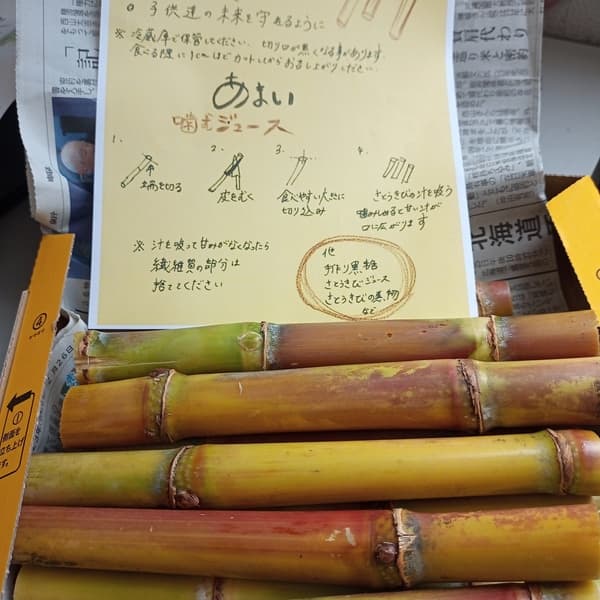 。子供達の未来を守れるように
※ 冷蔵庫で保管してください。切り口が黒くなる事があります。
食べる際に1cmほどカットしてからお召し上がりください。
あまい
噛むジュース
1.
端を切る
2.
皮をむく
3.
食べやすい大きさに
切り込み
4.
さとうきびの汁を吸う
噛みしめると甘い汁が
口に広がります
※ 汁を吸って甘みがなくなったら
繊維質の部分は
捨ててください
他
手作り黒糖
さとうきびジュース
さとうきびの煮物
など
北海道
代わり
月26日
④
①
側面を
立ち上げ
ます。